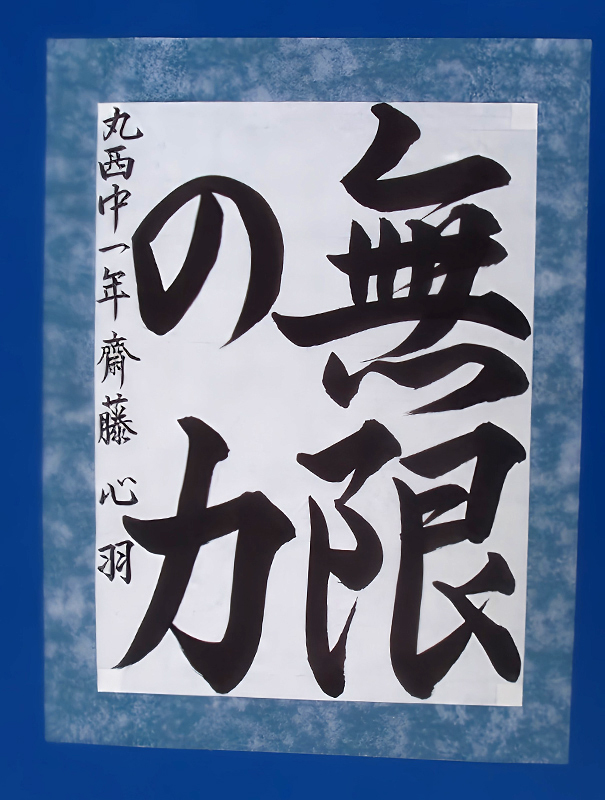 無限
の力
丸西中一年 齋藤心羽